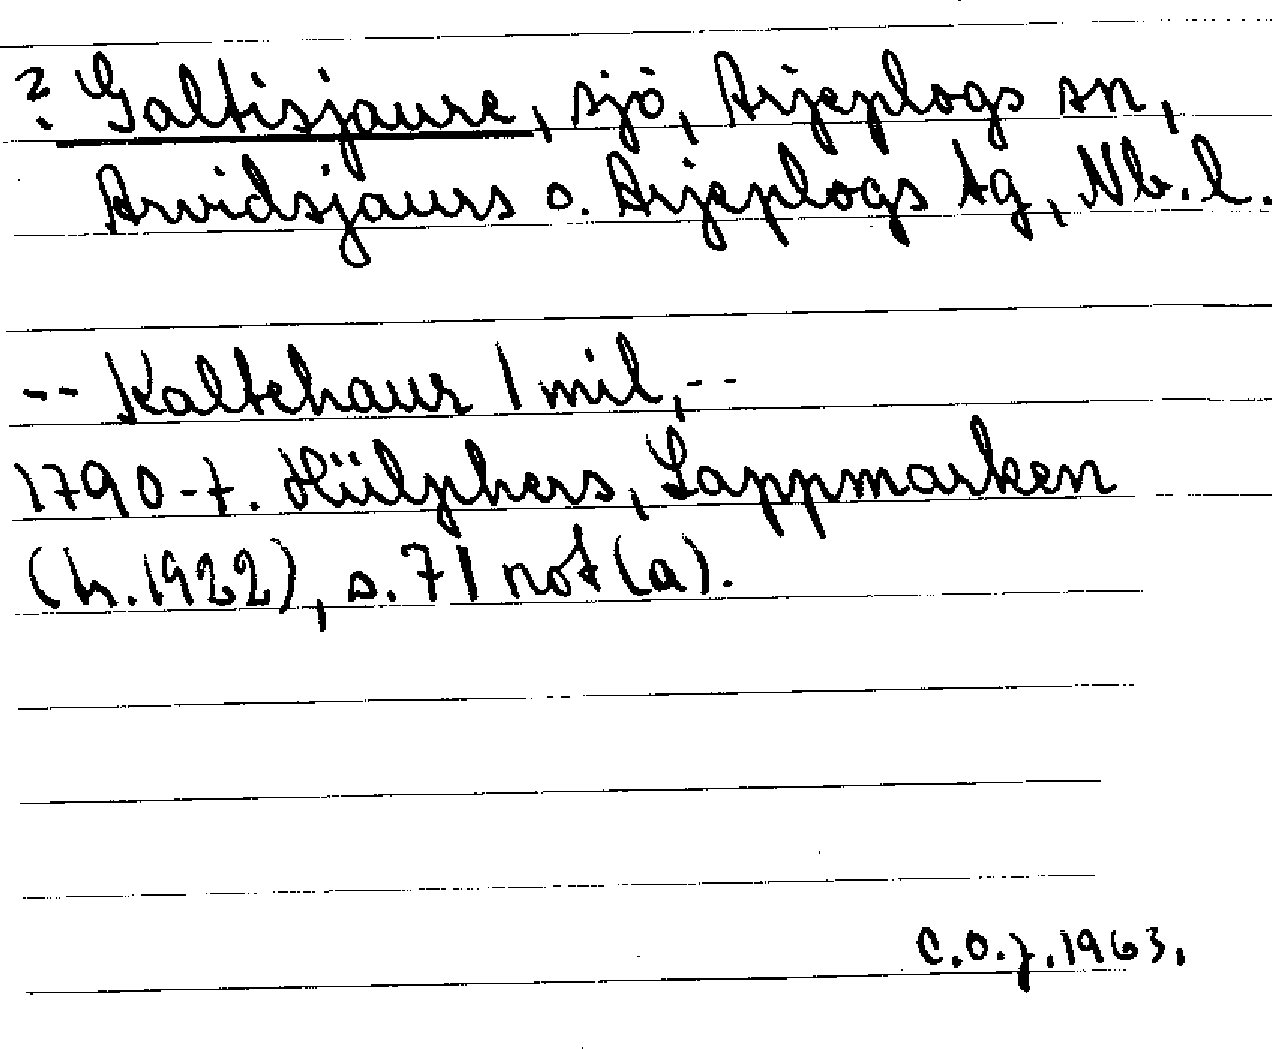 ? Galtisjaure, sjö, Arjeplogs sn,
Arvidsjaurs o. Arjeplogs tg, Nb. l.
-- Kaltehaur 1 mil, --
1790-t. Hülphers, Lappmarken
(tr. 1922), s. 71 not (a).
C.O.J. 1963.